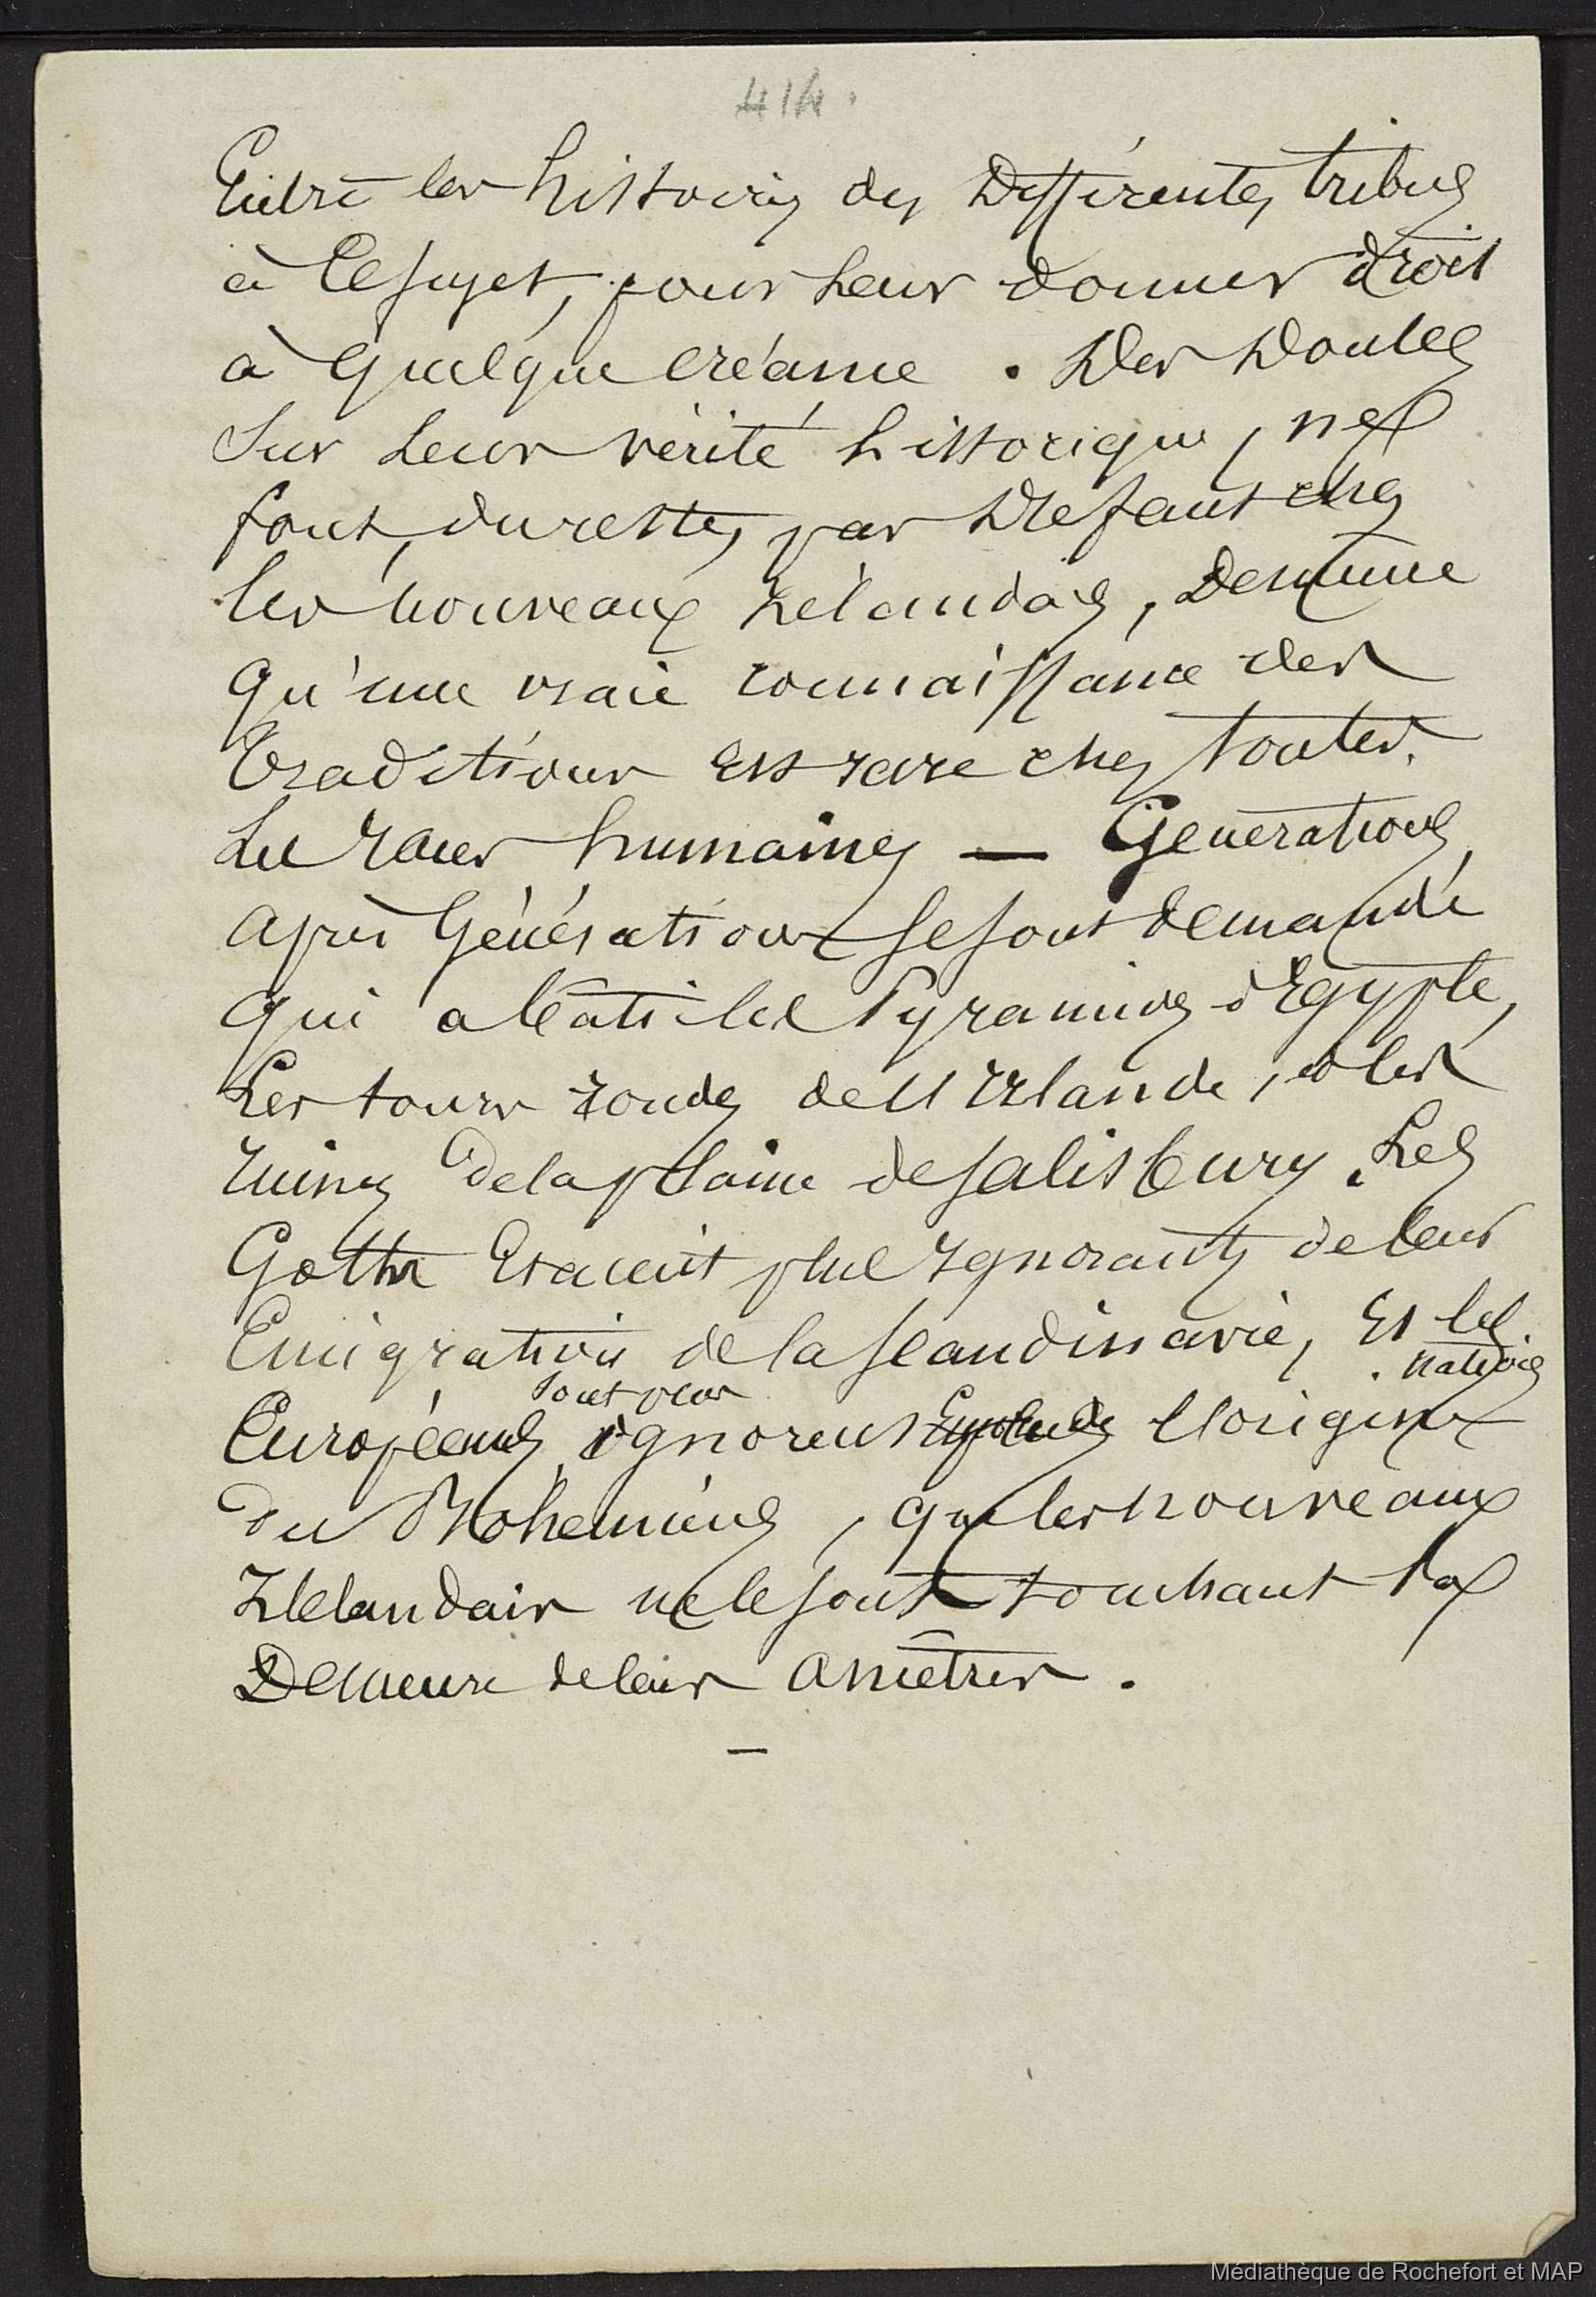 414.
Entre les histoires des Différentes tribus
à Ce sujet, pour Leur donner droit
à Quelque Créance. Des Doutes
Sur Leur vérité historique, ne
font, du reste, pas Défaut chez
les nouveaux Zélandais, De même
qu'une vraie connaissance des
Traditions Est rare chez toutes.
Les races humaines — Générations,
après Générations se sont demandé
qui a bâti les Pyramides d'Egypte,
Les tours rondes de l'Irlande, et les
ruines de la plaine de Salisbury. Les
Goths Etaient plus Ignorants de leur
Emigration de la Scandinavie, Et les
nations
sont plus
Européennes, ignorent l'origine
des Bohémiens, que les nouveaux
Zélandais ne le sont touchant la
Demeure de leurs ancêtres.
—
Médiathèque de Rochefort et MAP